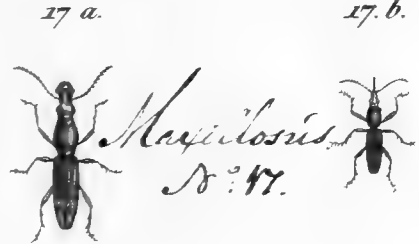 17 a. 17. b.
Maxillosus
Nº 17.